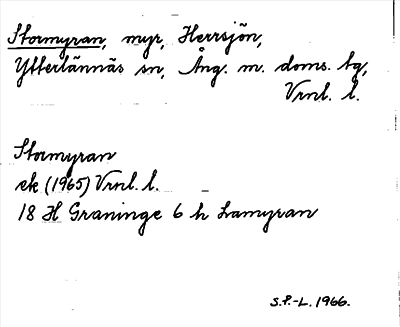 Stormyran, myr, Herrsjön,
Ytterlännäs sn, Ång. m. doms. tg,
Vrnl. l.
Stormyran
ek (1965) Vrnl. l.
18 H Graninge 6 h Lamyran
S.P.-L. 1966.